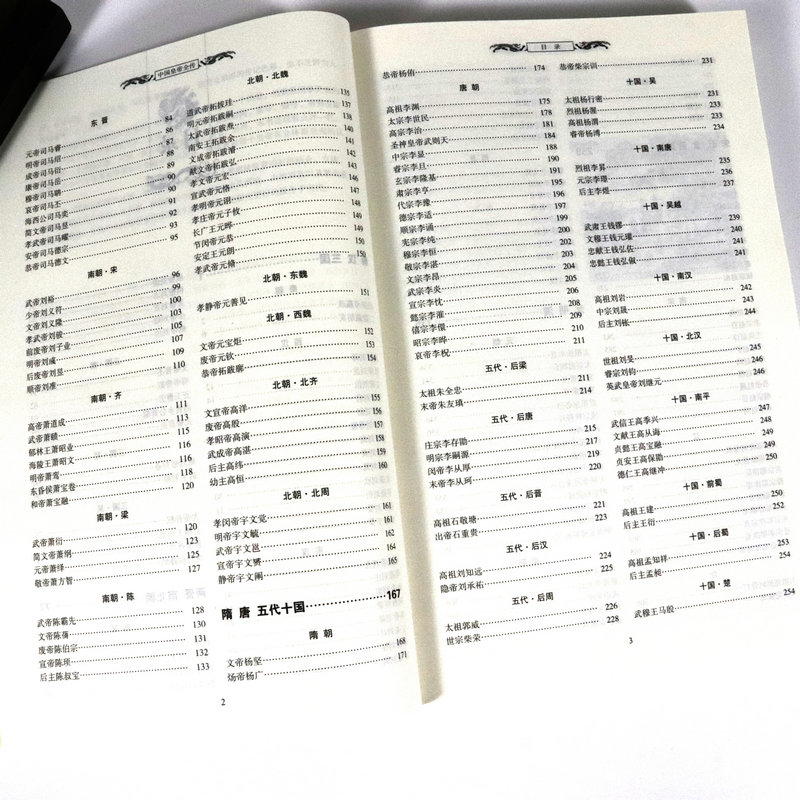 中国皇帝全传
东晋
元帝司马睿 84
明帝司马绍 86
成帝司马衍 87
康帝司马岳 88
穆帝司马聃 89
哀帝司马丕 90
海西公司马奕 91
简文帝司马昱 92
孝武帝司马曜 93
安帝司马德宗 93
恭帝司马德文 95
南朝·宋
武帝刘裕 96
少帝刘义符 99
文帝刘义隆 100
孝武帝刘骏 103
前废帝刘子业 105
明帝刘彧 107
后废帝刘昱 109
顺帝刘准 110
南朝·齐
高帝萧道成 111
武帝萧赜 113
郁林王萧昭业 115
海陵王萧昭文 116
明帝萧鸾 116
东昏侯萧宝卷 117
和帝萧宝融 119
南朝·梁
武帝萧衍 120
简文帝萧纲 123
元帝萧绎 125
敬帝萧方智 127
南朝·陈
武帝陈霸先 128
文帝陈蒨 130
废帝陈伯宗 131
宣帝陈顼 132
后主陈叔宝 133
北朝·北魏
道武帝拓拔珪 135
明元帝拓跋嗣 137
太武帝拓跋焘 138
南安王拓跋余 140
文成帝拓跋濬 141
献文帝拓跋弘 142
孝文帝元宏 143
宣武帝元恪 144
孝明帝元诩
孝庄帝元子攸
长广王元晔
节闵帝元恭
安定王元朗
孝武帝元脩 150
北朝·东魏
孝静帝元善见 151
北朝·西魏
文帝元宝炬 152
废帝元钦 153
恭帝拓跋廓 154
北朝·北齐
文宣帝高洋 155
废帝高殷 156
孝昭帝高演 157
武成帝高湛 158
后主高纬 159
幼主高恒 160
北朝·北周
孝闵帝宇文觉 161
明帝宇文毓 161
武帝宇文邕 162
宣帝宇文赟 164
静帝宇文阐 165
隋 唐 五代十国 167
隋朝
文帝杨坚 168
炀帝杨广 171
2
目录
恭帝杨侑 174
唐朝
高祖李渊 175
太宗李世民 178
高宗李治 182
圣神皇帝武则天 184
中宗李显 188
睿宗李旦 190
玄宗李隆基 191
肃宗李亨
代宗李豫
德宗李适
顺宗李诵
宪宗李纯
穆宗李恒
敬宗李湛
文宗李昂 204
武宗李炎 205
宣宗李忱 206
懿宗李漼 208
僖宗李儇 209
昭宗李晔 210
哀帝李柷 211
五代·后梁
太祖朱全忠 211
末帝朱友瑱 214
五代·后唐
庄宗李存勖 215
明宗李嗣源 217
闵帝李从厚 219
末帝李从珂 220
五代·后晋
高祖石敬瑭 221
出帝石重贵 223
五代·后汉
高祖刘知远 224
隐帝刘承祐 225
五代·后周
太祖郭威 226
世宗柴荣 228
恭帝柴宗训 231
十国·吴
太祖杨行密 231
烈祖杨渥 233
高祖杨渭 233
睿帝杨溥 234
十国·南唐
烈祖李昪 235
元宗李璟 236
后主李煜 237
十国·吴越
武肃王钱镠 239
文穆王钱元瓘 240
忠献王钱弘佐 241
忠懿王钱弘俶 241
十国·南汉
高祖刘岩 242
中宗刘晟 243
后主刘𬬮 244
十国·北汉
世祖刘旻 245
睿宗刘钧 246
英武皇帝刘继元 246
十国·南平
武信王高季兴 247
文献王高从诲 248
贞懿王高宝融 249
贞安王高保勖 250
德仁王高继冲 250
十国·前蜀
高祖王建 250
后主王衍 252
十国·后蜀
高祖孟知祥 253
后主孟昶 254
十国·楚
武穆王马殷 254
3